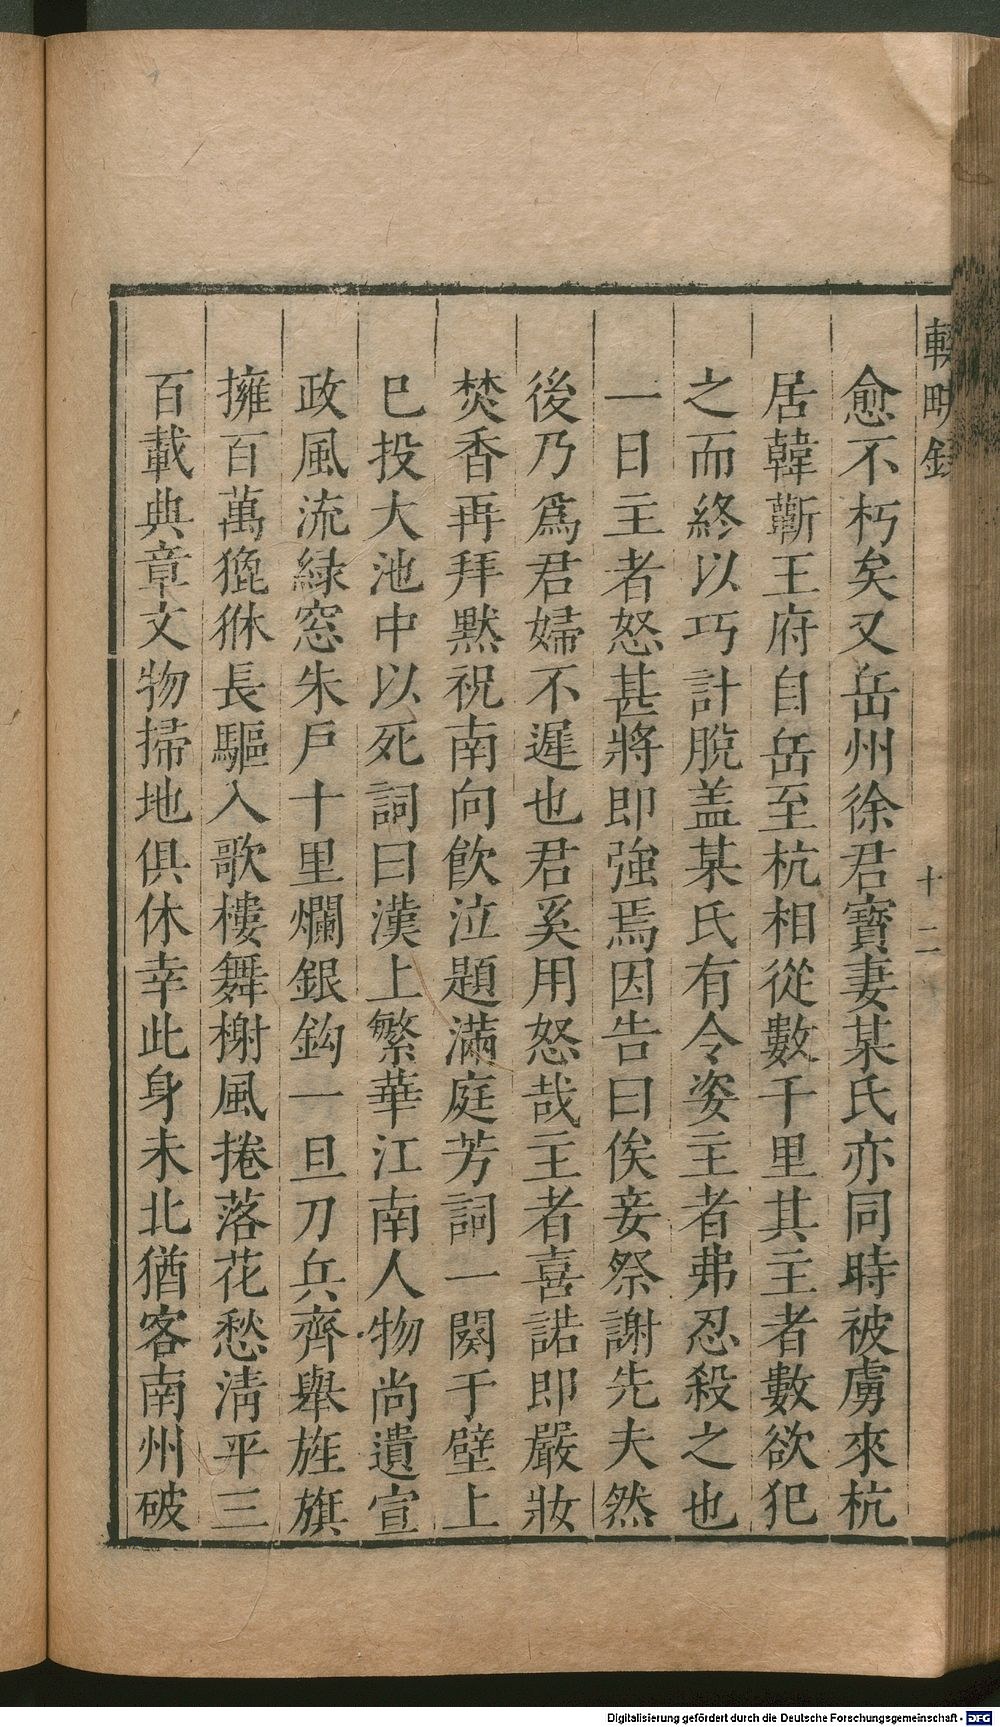 輟畊錄
十二
愈不朽矣又岳州徐君寶妻某氏亦同時被虜來杭
居韓蘄王府自岳至杭相從數千里其主者數欲犯
之而終以巧計脫盖某氏有令姿主者弗忍殺之也
一日主者怒甚將即強焉因告曰俟妾祭謝先夫然
後乃爲君婦不遲也君奚用怒哉主者喜諾即嚴妝
焚香再拜默祝南向飲泣題滿庭芳詞一闋于壁上
已投大池中以死詞曰漢上繁華江南人物尚遺宣
政風流緑窓朱戶十里爛銀鈎一旦刀兵齊舉旌旗
擁百萬貔貅長驅入歌樓舞榭風捲落花愁淸平三
百載典章文物掃地俱休幸此身未北猶客南州破
Digitalisierung gefördert durch die Deutsche Forschungsgemeinschaft - DFG